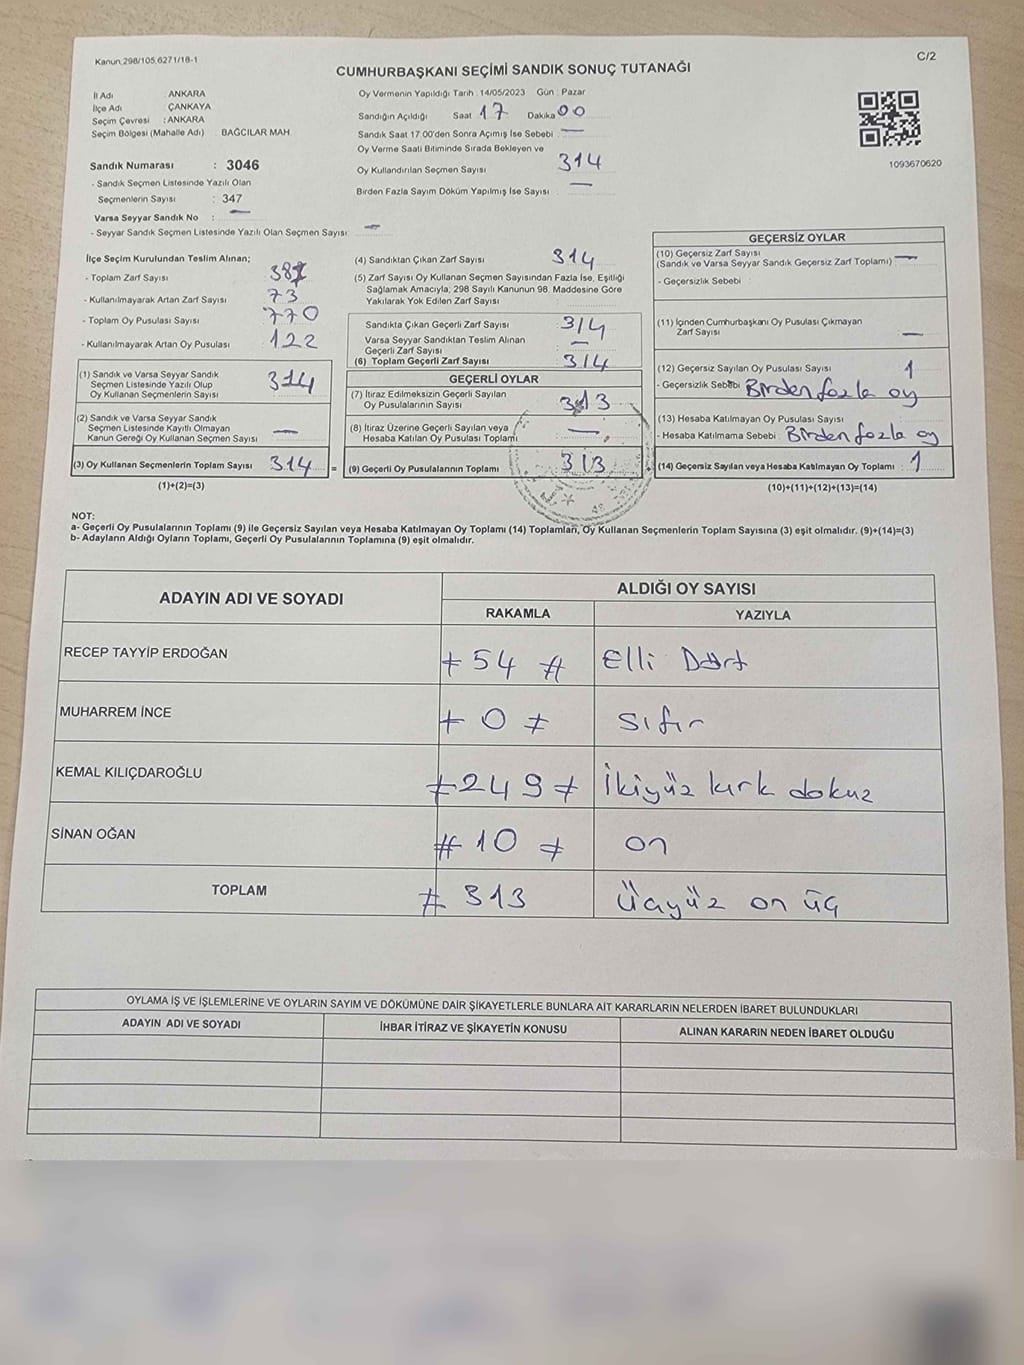 Kanun 298/105,6271/18-1
C/2
CUMHURBAŞKANI SEÇİMİ SANDIK SONUÇ TUTANAĞI
İl Adı : ANKARA
İlçe Adı : ÇANKAYA
Seçim Çevresi : ANKARA
Seçim Bölgesi (Mahalle Adı) : BAĞCILAR MAH.
Sandık Numarası : 3046
- Sandık Seçmen Listesinde Yazılı Olan
Seçmenlerin Sayısı : 347
Varsa Seyyar Sandık No : —
- Seyyar Sandık Seçmen Listesinde Yazılı Olan Seçmen Sayısı: —
Oy Vermenin Yapıldığı Tarih : 14/05/2023 Gün : Pazar
Sandığın Açıldığı Saat 17 Dakika 00
Sandık Saat 17.00'den Sonra Açımış İse Sebebi : —
Oy Verme Saati Bitiminde Sırada Bekleyen ve
Oy Kullandırılan Seçmen Sayısı 314
Birden Fazla Sayım Döküm Yapılmış İse Sayısı : —
1093670620
İlçe Seçim Kurulundan Teslim Alınan;
- Toplam Zarf Sayısı
- Kullanılmayarak Artan Zarf Sayısı 73
- Toplam Oy Pusulası Sayısı 770
- Kullanılmayarak Artan Oy Pusulası 122
(1) Sandık ve Varsa Seyyar Sandık
Seçmen Listesinde Yazılı Olup
Oy Kullanan Seçmenlerin Sayısı 314
(2) Sandık ve Varsa Seyyar Sandık
Seçmen Listesinde Kayıtlı Olmayan
Kanun Gereği Oy Kullanan Seçmen Sayısı —
(3) Oy Kullanan Seçmenlerin Toplam Sayısı 314 =
(1)+(2)=(3)
(4) Sandıktan Çıkan Zarf Sayısı 314
(5) Zarf Sayısı Oy Kullanan Seçmen Sayısından Fazla İse, Eşitliği
Sağlamak Amacıyla; 298 Sayılı Kanunun 98. Maddesine Göre
Yakılarak Yok Edilen Zarf Sayısı
Sandıkta Çıkan Geçerli Zarf Sayısı 314
Varsa Seyyar Sandıktan Teslim Alınan
Geçerli Zarf Sayısı —
(6) Toplam Geçerli Zarf Sayısı 314
GEÇERLİ OYLAR
(7) İtiraz Edilmeksizin Geçerli Sayılan
Oy Pusulalarının Sayısı 313
(8) İtiraz Üzerine Geçerli Sayılan veya
Hesaba Katılan Oy Pusulası Toplamı —
(9) Geçerli Oy Pusulalarının Toplamı 313
GEÇERSİZ OYLAR
(10) Geçersiz Zarf Sayısı
(Sandık ve Varsa Seyyar Sandık Geçersiz Zarf Toplamı) —
- Geçersizlik Sebebi :
(11) İçinden Cumhurbaşkanı Oy Pusulası Çıkmayan
Zarf Sayısı —
(12) Geçersiz Sayılan Oy Pusulası Sayısı 1
- Geçersizlik Sebebi Birden fazla oy
(13) Hesaba Katılmayan Oy Pusulası Sayısı
- Hesaba Katılmama Sebebi : Birden fazla oy
(14) Geçersiz Sayılan veya Hesaba Katılmayan Oy Toplamı : 1
(10)+(11)+(12)+(13)=(14)
NOT:
a- Geçerli Oy Pusulalarının Toplamı (9) ile Geçersiz Sayılan veya Hesaba Katılmayan Oy Toplamı (14) Toplamları, Oy Kullanan Seçmenlerin Toplam Sayısına (3) eşit olmalıdır. (9)+(14)=(3)
b- Adayların Aldığı Oyların Toplamı, Geçerli Oy Pusulalarının Toplamına (9) eşit olmalıdır.
ADAYIN ADI VE SOYADI
ALDIĞI OY SAYISI
RAKAMLA YAZIYLA
RECEP TAYYİP ERDOĞAN # 54 # Elli Dört
MUHARREM İNCE # 0 # sıfır
KEMAL KILIÇDAROĞLU # 249 # İkiyüz kırk dokuz
SİNAN OĞAN # 10 # on
TOPLAM # 313 Üçyüz on üç
OYLAMA İŞ VE İŞLEMLERİNE VE OYLARIN SAYIM VE DÖKÜMÜNE DAİR ŞİKAYETLERLE BUNLARA AİT KARARLARIN NELERDEN İBARET BULUNDUKLARI
ADAYIN ADI VE SOYADI İHBAR İTİRAZ VE ŞİKAYETİN KONUSU ALINAN KARARIN NEDEN İBARET OLDUĞU